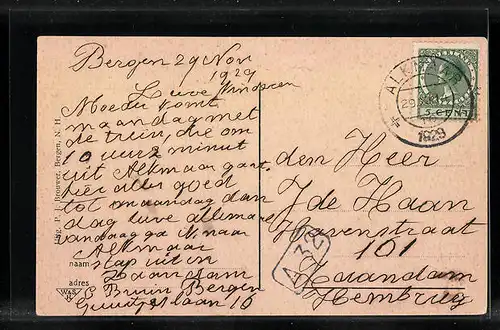 Bergen 29 Nov
1929
Lieve Kinderen
Moeder komt
maandag met
de trein, die om
10 uur 2 minut
uit Alkmaar gaat.
hier alles goed
tot maandag dan
dag lieve allemaal
vandaag ga naar
Alkmaar
stap uit in
Zaandam
Bruin Bergen
laan 10
naam
adres
Uitg. P. J. Brouwer, Bergen, N. H.
den Heer
J de Haan
Havenstraat
101
Zaandam
Hembrug
A 32
ALKMAAR
1929
5 CENT